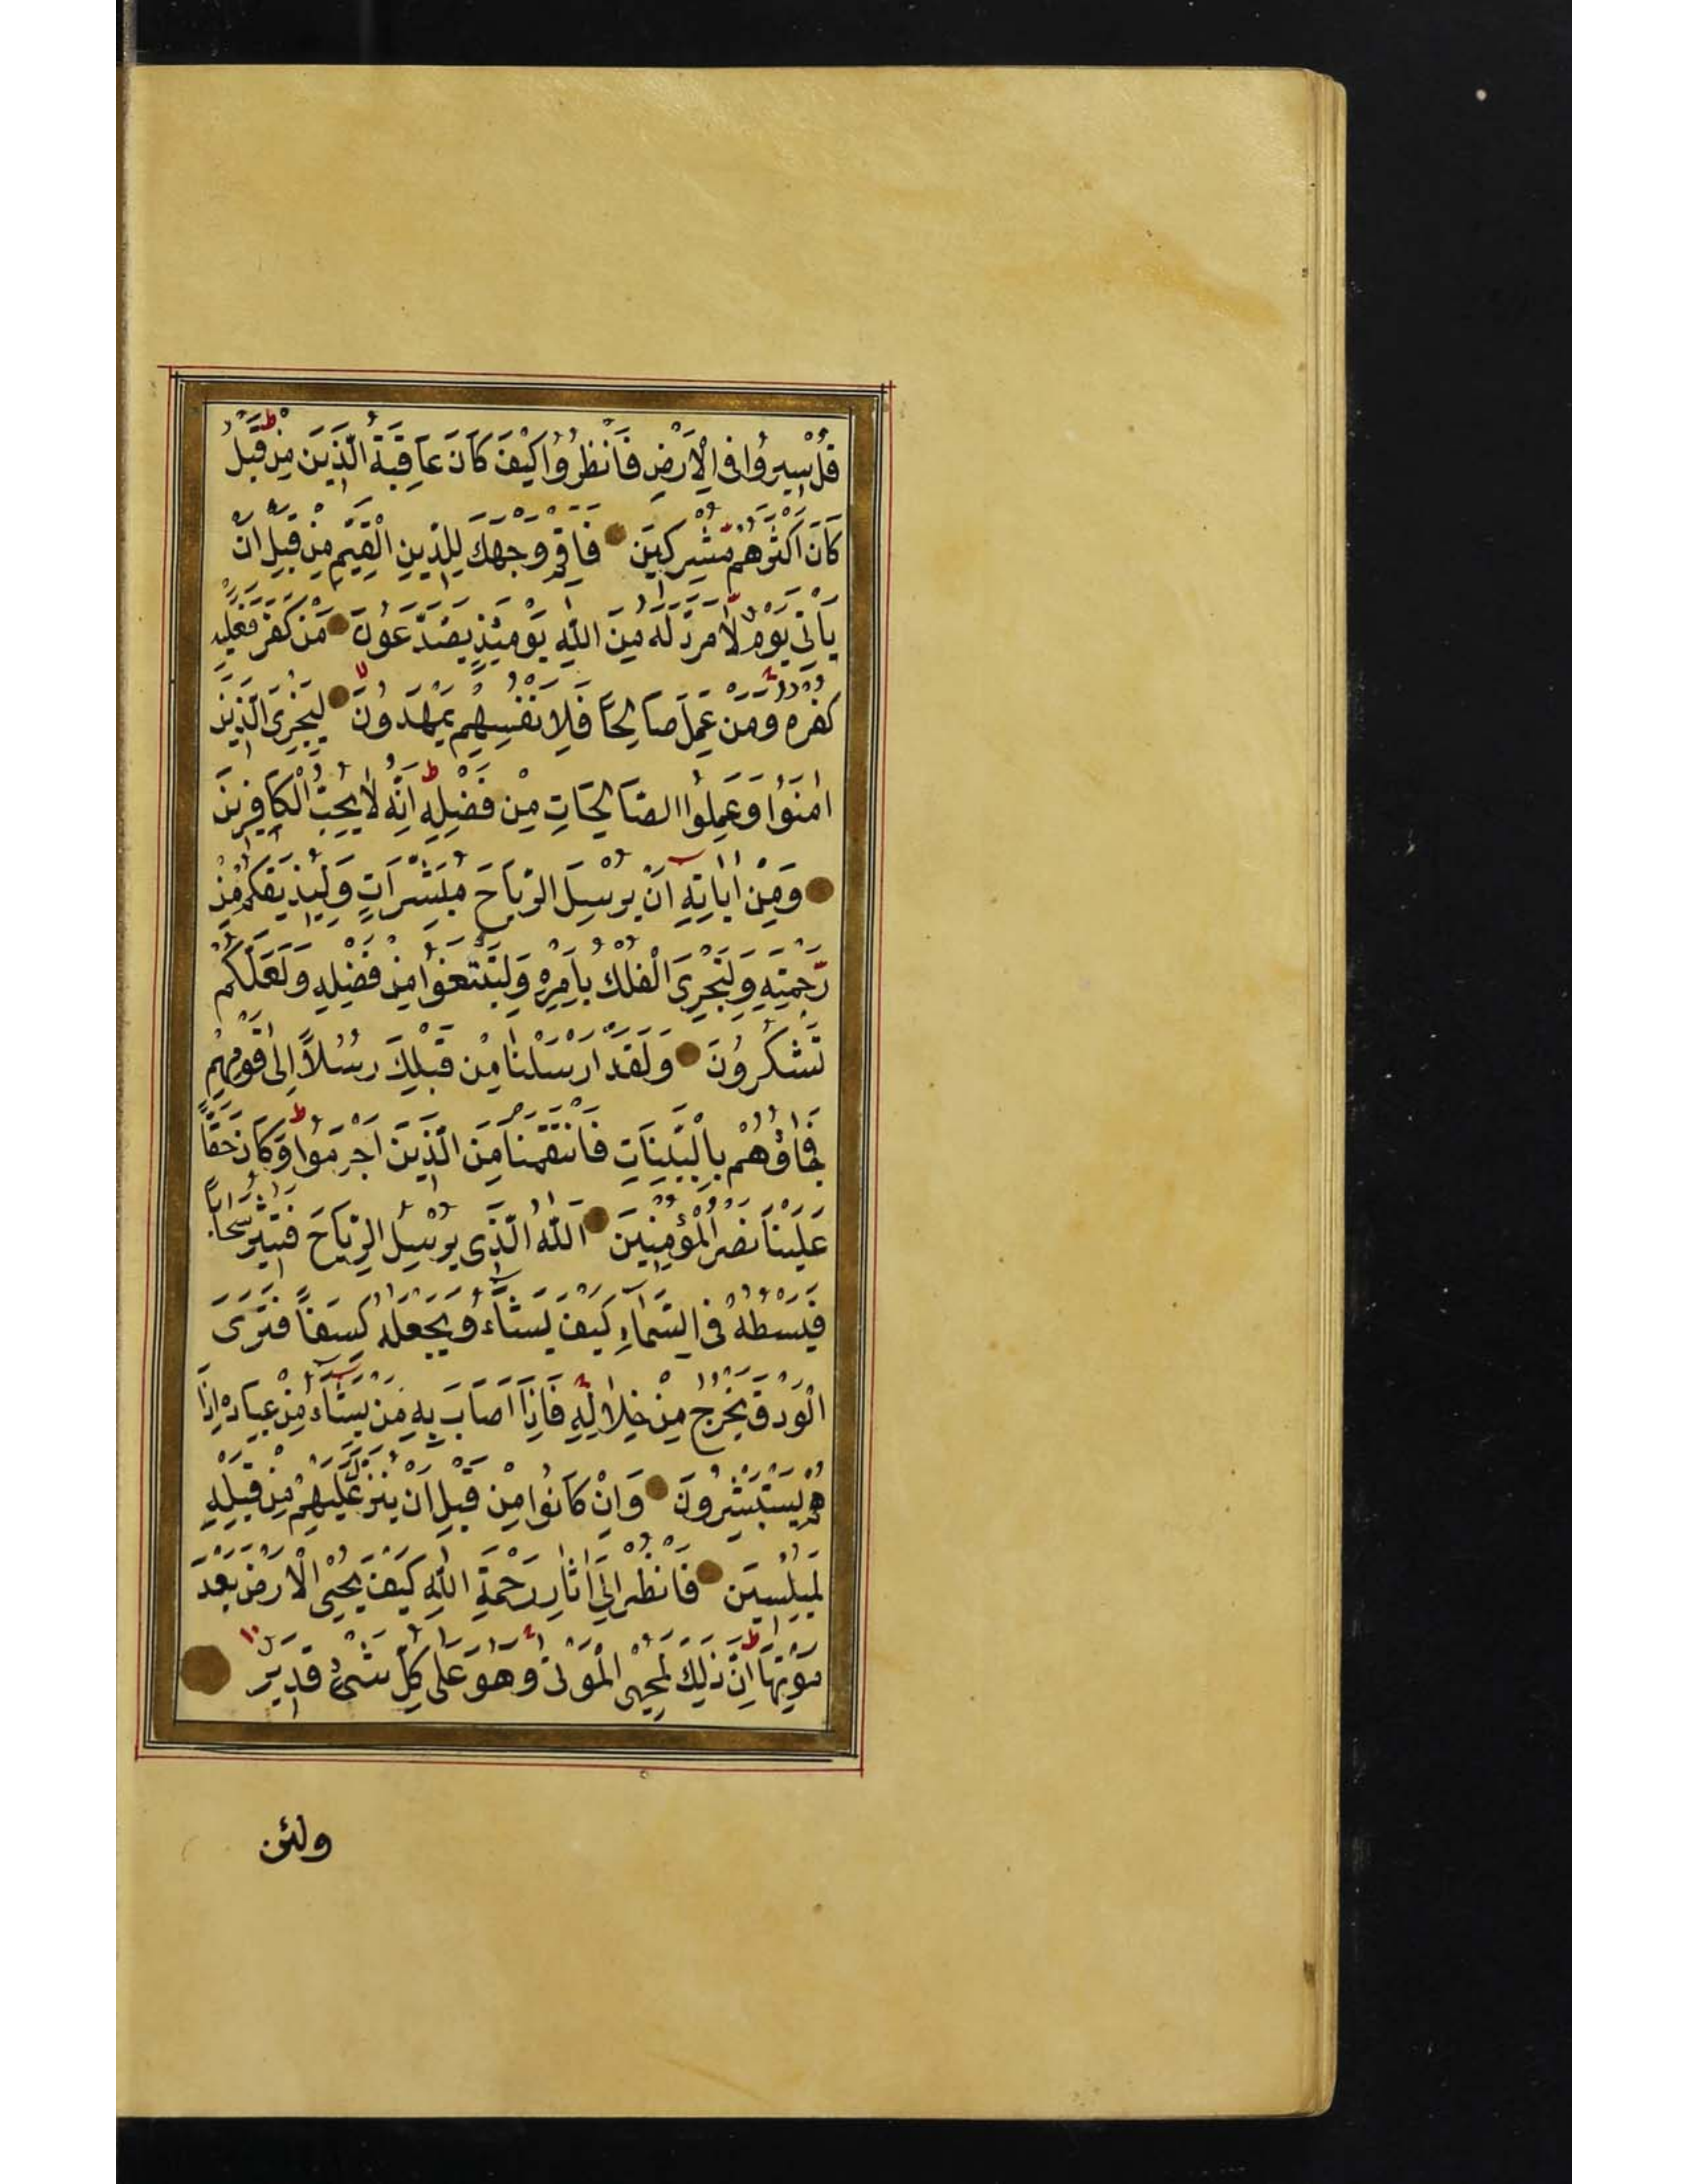 قُلْ سِيرُوا فِي الْاَرْضِ فَانْظُرُوا كَيْفَ كَانَ عَاقِبَةُ الَّذِينَ مِنْ قَبْلُ
كَانَ اَكْثَرُهُمْ مُشْرِكِينَ فَاَقِمْ وَجْهَكَ لِلدِّينِ الْقَيِّمِ مِنْ قَبْلِ اَنْ
يَاْتِيَ يَوْمٌ لَا مَرَدَّ لَهُ مِنَ اللّٰهِ يَوْمَئِذٍ يَصَّدَّعُونَ مَنْ كَفَرَ فَعَلَيْهِ
كُفْرُهُ وَمَنْ عَمِلَ صَالِحًا فَلِاَنْفُسِهِمْ يَمْهَدُونَ لِيَجْزِيَ الَّذِينَ
اٰمَنُوا وَعَمِلُوا الصَّالِحَاتِ مِنْ فَضْلِهِ اِنَّهُ لَا يُحِبُّ الْكَافِرِينَ
وَمِنْ اٰيَاتِهِ اَنْ يُرْسِلَ الرِّيَاحَ مُبَشِّرَاتٍ وَلِيُذِيقَكُمْ مِنْ
رَحْمَتِهِ وَلِتَجْرِيَ الْفُلْكُ بِاَمْرِهِ وَلِتَبْتَغُوا مِنْ فَضْلِهِ وَلَعَلَّكُمْ
تَشْكُرُونَ وَلَقَدْ اَرْسَلْنَا مِنْ قَبْلِكَ رُسُلًا اِلٰى قَوْمِهِمْ
فَجَاؤُهُمْ بِالْبَيِّنَاتِ فَانْتَقَمْنَا مِنَ الَّذِينَ اَجْرَمُوا وَكَانَ حَقًّا
عَلَيْنَا نَصْرُ الْمُؤْمِنِينَ اَللّٰهُ الَّذِي يُرْسِلُ الرِّيَاحَ فَتُثِيرُ سَحَابًا
فَيَبْسُطُهُ فِي السَّمَاءِ كَيْفَ يَشَاءُ وَيَجْعَلُهُ كِسَفًا فَتَرَى
الْوَدْقَ يَخْرُجُ مِنْ خِلَالِهِ فَاِذَا اَصَابَ بِهِ مَنْ يَشَاءُ مِنْ عِبَادِهِ اِذَا
هُمْ يَسْتَبْشِرُونَ وَاِنْ كَانُوا مِنْ قَبْلِ اَنْ يُنَزَّلَ عَلَيْهِمْ مِنْ قَبْلِهِ
لَمُبْلِسِينَ فَانْظُرْ اِلٰى اٰثَارِ رَحْمَةِ اللّٰهِ كَيْفَ يُحْيِي الْاَرْضَ بَعْدَ
مَوْتِهَا اِنَّ ذٰلِكَ لَمُحْيِي الْمَوْتٰى وَهُوَ عَلٰى كُلِّ شَيْءٍ قَدِيرٌ
ولئن